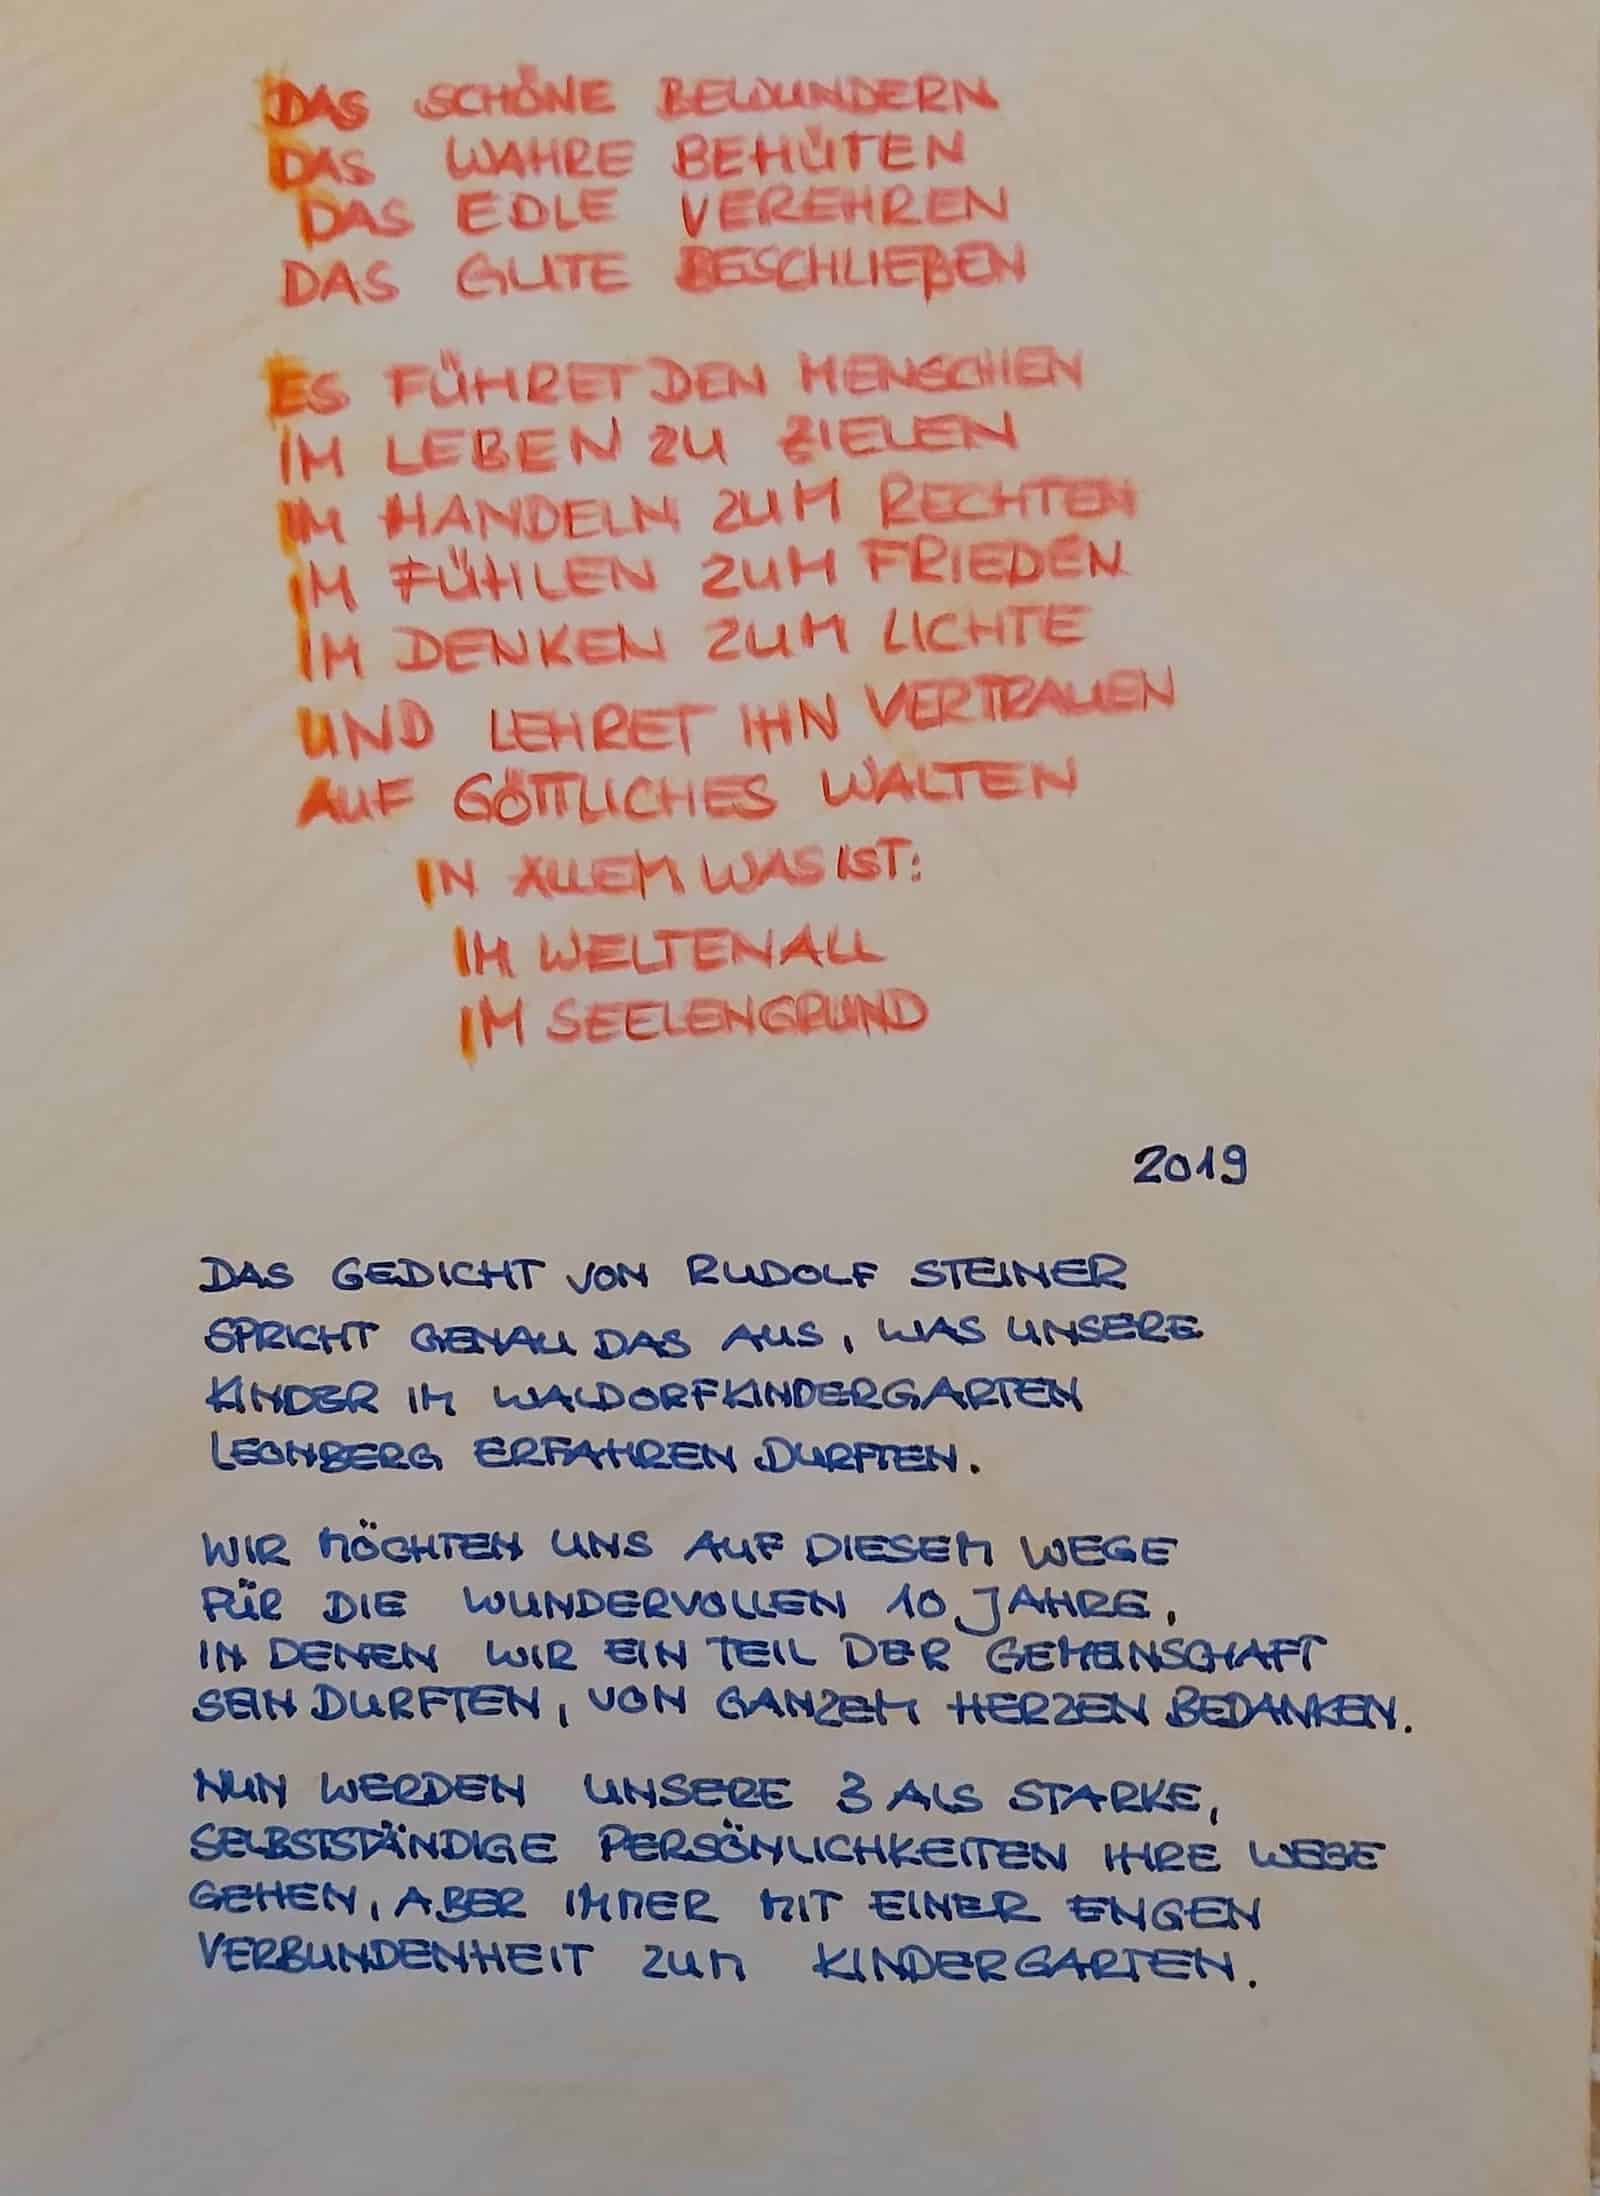 DAS SCHÖNE BEWUNDERN
DAS WAHRE BEHÜTEN
DAS EDLE VEREHREN
DAS GUTE BESCHLIEßEN
ES FÜHRET DEN MENSCHEN
IM LEBEN ZU ZIELEN
IM HANDELN ZUM RECHTEN
IM FÜHLEN ZUM FRIEDEN
IM DENKEN ZUM LICHTE
UND LEHRET IHN VERTRAUEN
AUF GÖTTLICHES WALTEN
IN ALLEM WAS IST:
IM WELTENALL
IM SEELENGRUND
2019
DAS GEDICHT VON RUDOLF STEINER
SPRICHT GENAU DAS AUS, WAS UNSERE
KINDER IM WALDORFKINDERGARTEN
LEONBERG ERFAHREN DURFTEN.
WIR MÖCHTEN UNS AUF DIESEM WEGE
FÜR DIE WUNDERVOLLEN 10 JAHRE,
IN DENEN WIR EIN TEIL DER GEMEINSCHAFT
SEIN DURFTEN, VON GANZEM HERZEN BEDANKEN.
NUN WERDEN UNSERE 3 ALS STARKE,
SELBSTSTÄNDIGE PERSÖNLICHKEITEN IHRE WEGE
GEHEN, ABER IMMER MIT EINER ENGEN
VERBUNDENHEIT ZUM KINDERGARTEN.